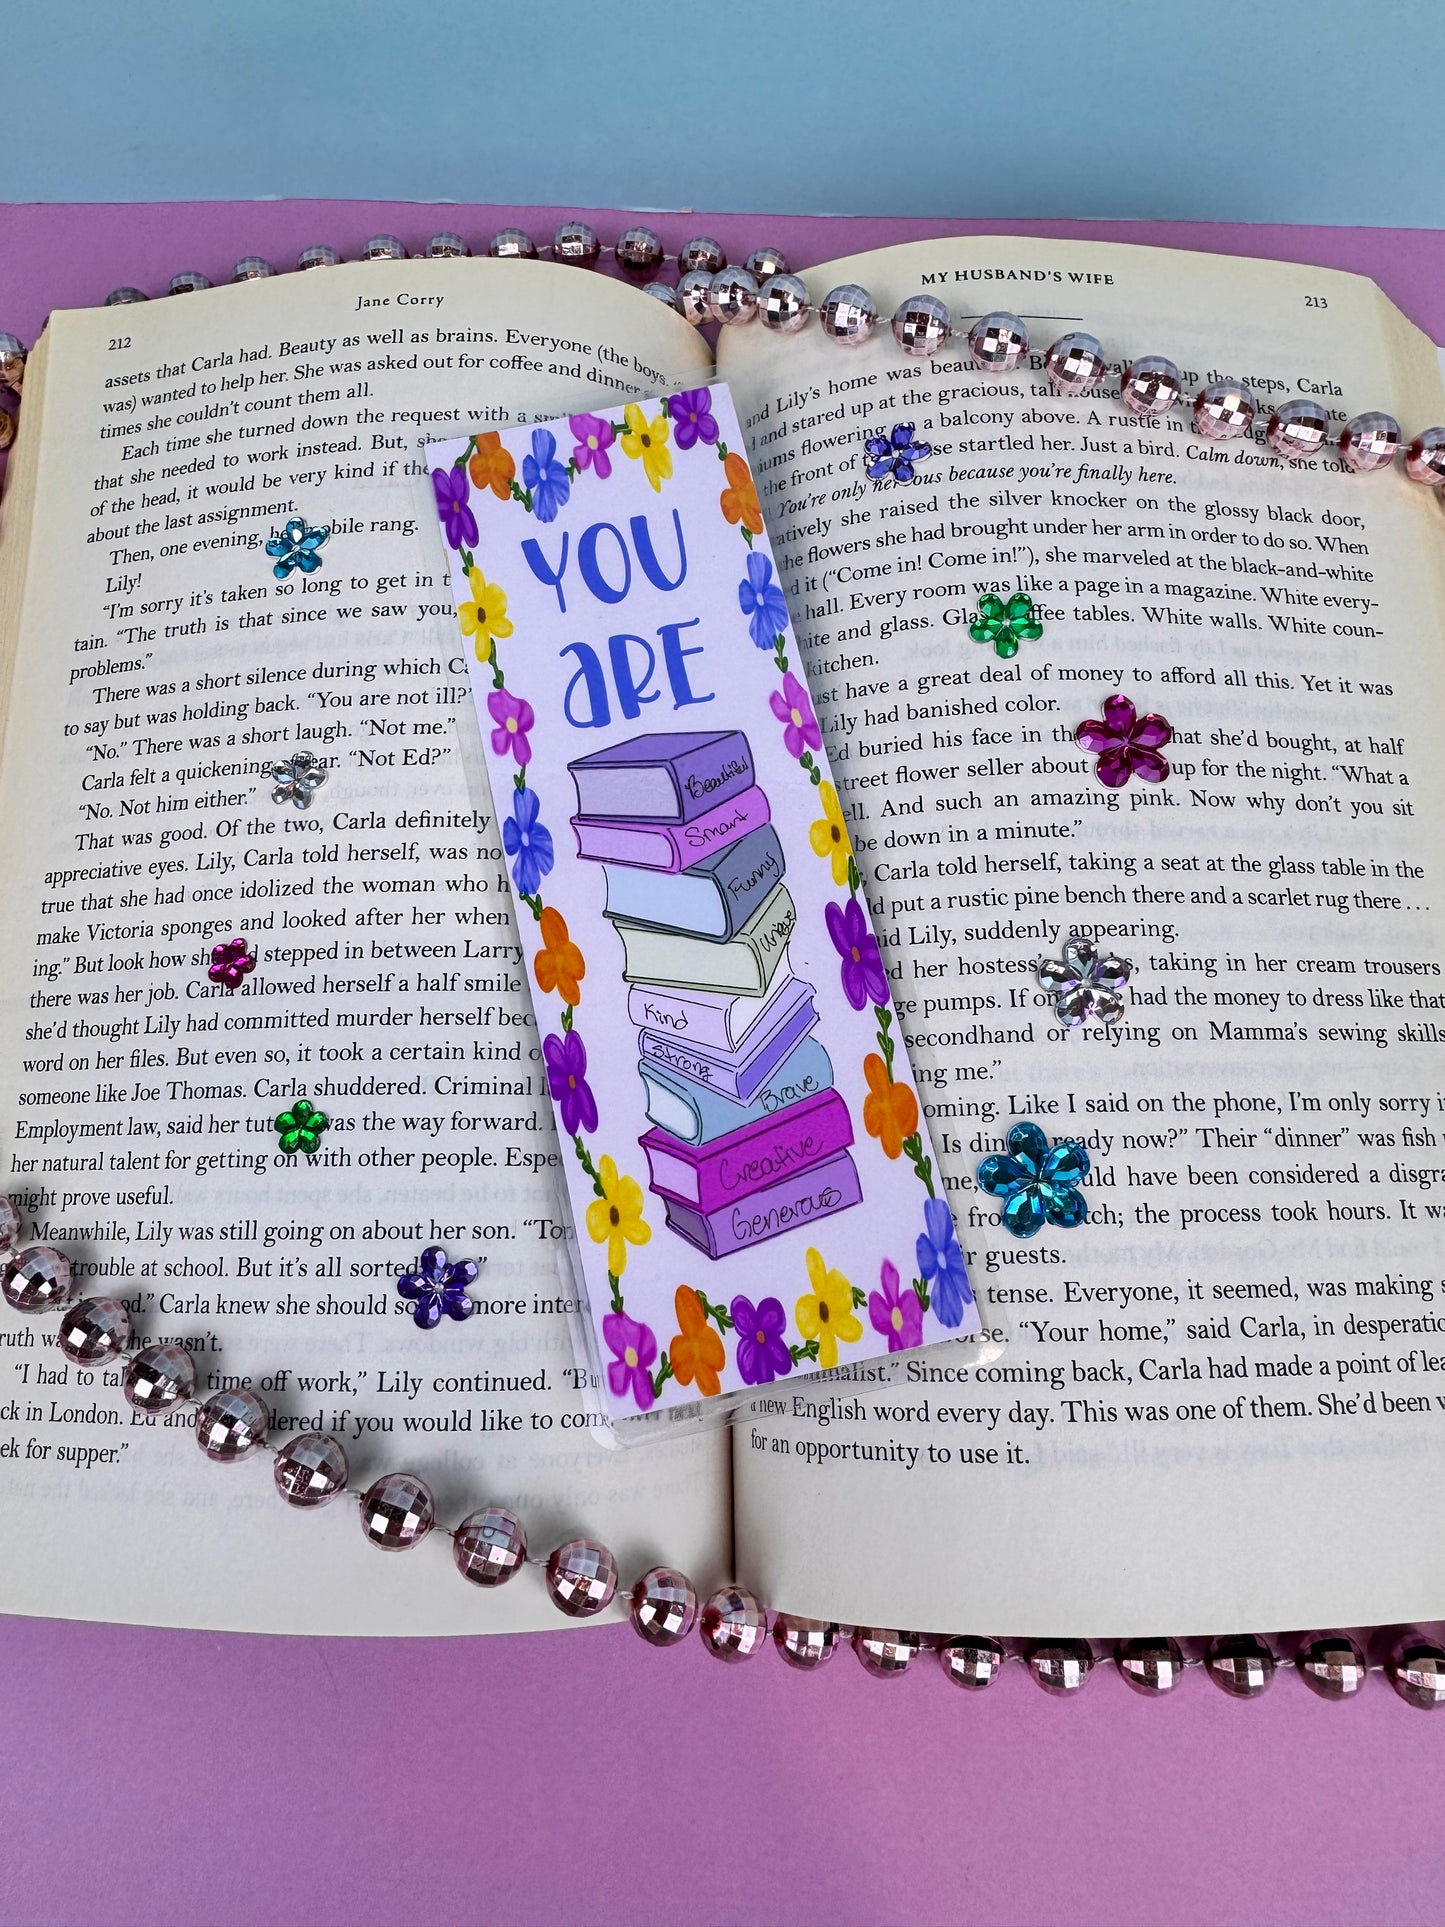 Jane Corry
212
assets that Carla had. Beauty as well as brains. Everyone (the boys,
was) wanted to help her. She was asked out for coffee and dinner
times she couldn't count them all.
Each time she turned down the request with a
that she needed to work instead. But, she
of the head, it would be very kind if the
about the last assignment.
Then, one evening, her mobile rang.
Lily!
"I'm sorry it's taken so long to get in t
tain. "The truth is that since we saw you,
problems."
There was a short silence during which Ca
to say but was holding back. "You are not ill?"
"No." There was a short laugh. "Not me."
Carla felt a quickening fear. "Not Ed?"
"No. Not him either."
That was good. Of the two, Carla definitely
appreciative eyes. Lily, Carla told herself, was no
true that she had once idolized the woman who h
make Victoria sponges and looked after her when
ing." But look how she'd stepped in between Larry
there was her job. Carla allowed herself a half smile
she'd thought Lily had committed murder herself bec
word on her files. But even so, it took a certain kind o
someone like Joe Thomas. Carla shuddered. Criminal l
Employment law, said her tutor, was the way forward.
her natural talent for getting on with other people. Espe
might prove useful.
Meanwhile, Lily was still going on about her son. "Tom
trouble at school. But it's all sorted now."
od." Carla knew she should so more inter
ruth wa she wasn't.
"I had to tak time off work," Lily continued. "Bu
ck in London. Ed and dered if you would like to com
ek for supper."
YOU
ARE
Beautiful
Smart
Funny
Unique
Kind
Strong
Brave
Creative
Generous
MY HUSBAND'S WIFE
213
and Lily's home was beau up the steps, Carla
and stared up at the gracious, tall house
iums flowering a balcony above. A rustle in
the front of se startled her. Just a bird. Calm down, she told
You're only nervous because you're finally here.
atively she raised the silver knocker on the glossy black door,
he flowers she had brought under her arm in order to do so. When
d it ("Come in! Come in!"), she marveled at the black-and-white
hall. Every room was like a page in a magazine. White every-
ite and glass. Glass coffee tables. White walls. White coun-
kitchen.
ust have a great deal of money to afford all this. Yet it was
Lily had banished color.
Ed buried his face in th that she'd bought, at half
street flower seller about up for the night. "What a
ell. And such an amazing pink. Now why don't you sit
be down in a minute."
, Carla told herself, taking a seat at the glass table in the
ld put a rustic pine bench there and a scarlet rug there . . .
id Lily, suddenly appearing.
ed her hostess's , taking in her cream trousers
ge pumps. If on had the money to dress like that
secondhand or relying on Mamma's sewing skills
ing me."
oming. Like I said on the phone, I'm only sorry i
Is dinner ready now?" Their "dinner" was fish
me, would have been considered a disgra
from scratch; the process took hours. It wa
ir guests.
tense. Everyone, it seemed, was making s
orse. "Your home," said Carla, in desperatio
malist." Since coming back, Carla had made a point of lea
a new English word every day. This was one of them. She'd been w
for an opportunity to use it.